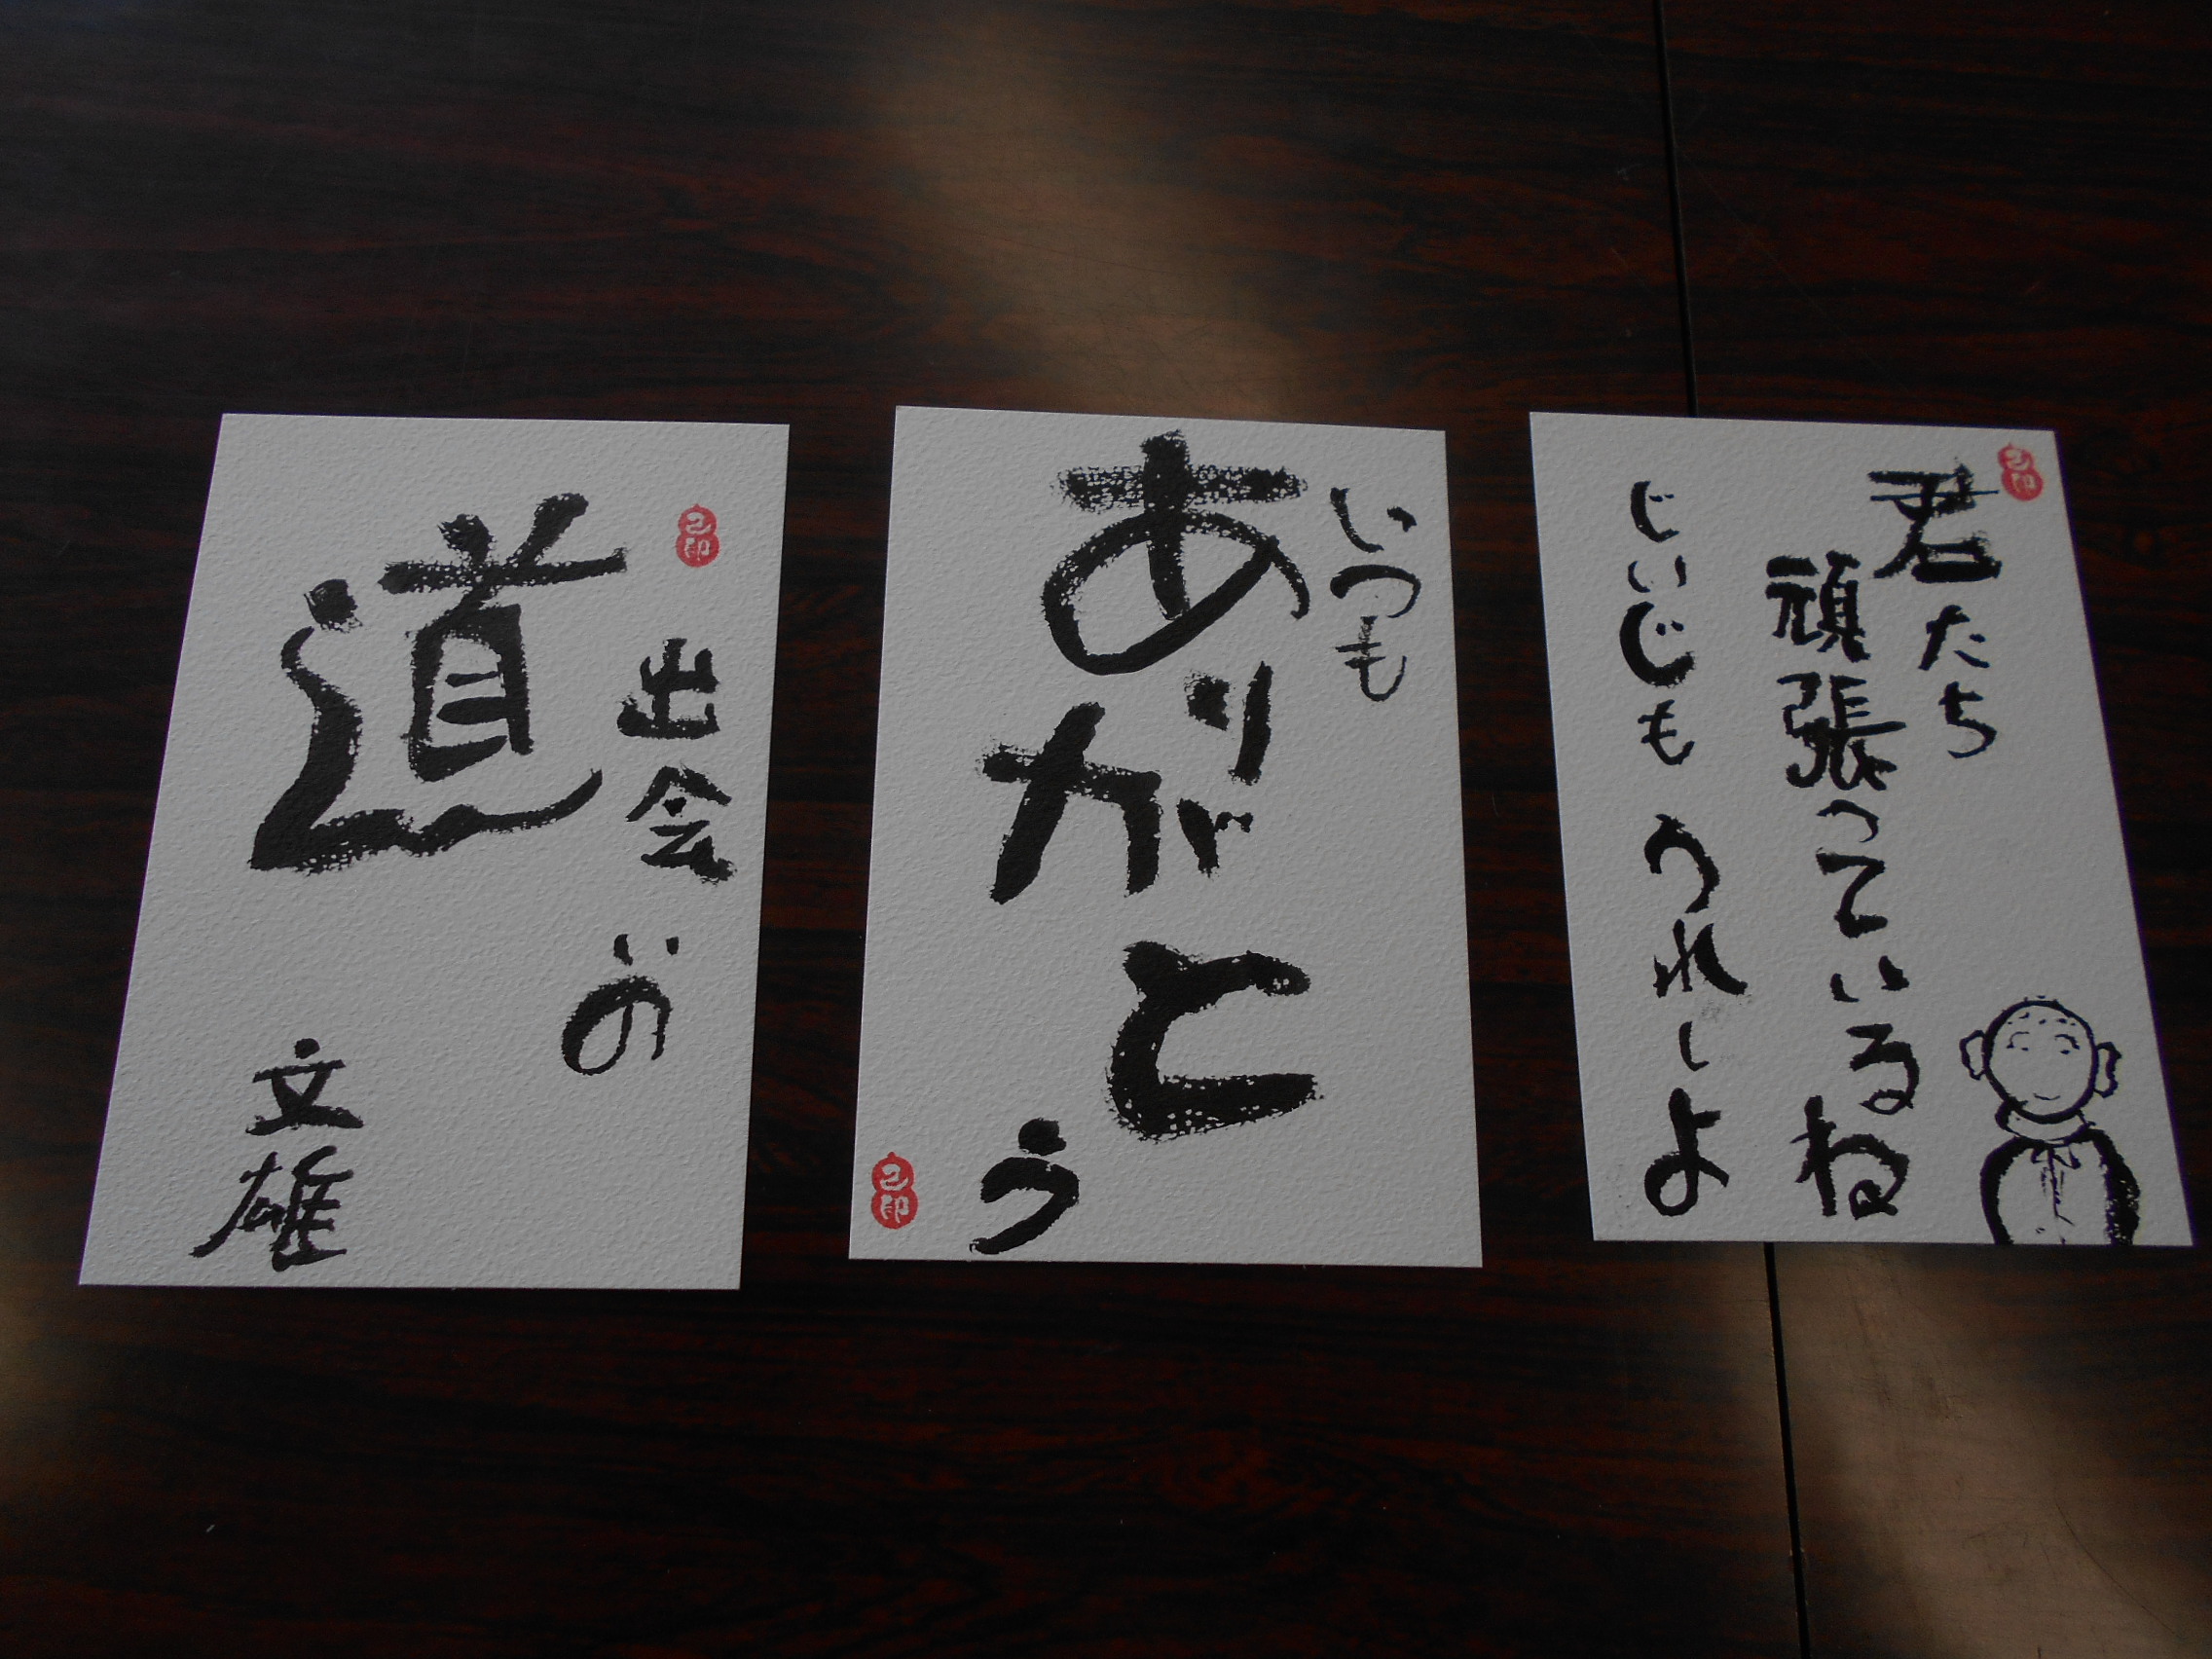 己印
出会いの
道
文雄
いつも
ありがとう
己印
己印
君たち
頑張っているね
じいじも うれしよ